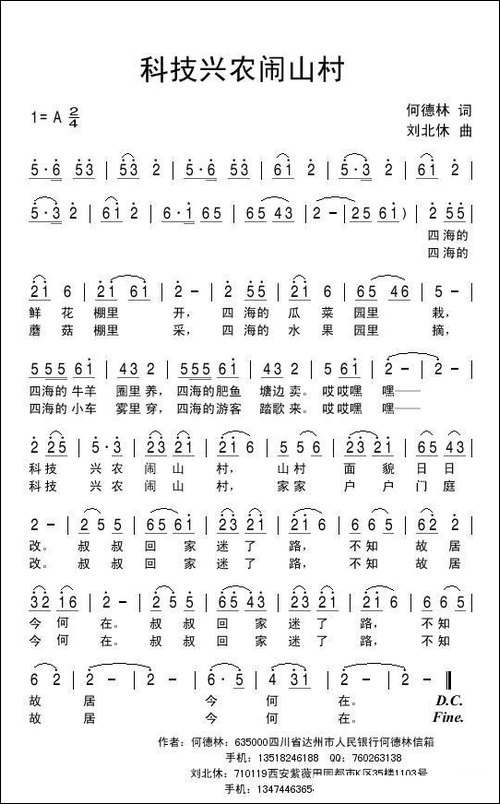 科技兴农闹山村
1= A 2/4
何德林 词
刘北休 曲
5·6 53 | 53 2 | 5·3 2 | 61 2 | 5·6 53 | 53 2 | 5·3 2 | 61 2 |
5·3 2 | 61 2 | 6·1 65 | 65 43 | 2 - | 25 61) | 2 55 |
四 海的
四 海的
21 6 | 21 61 | 2 - | 2 55 | 21 6 | 65 46 | 5 - |
鲜 花 棚里 开， 四 海的 瓜 菜 园里 栽，
蘑 菇 棚里 采， 四 海的 水 果 园里 摘，
555 61 | 43 2 | 555 61 | 43 2 | 65 61 | 2 - | 2 - |
四海的 牛羊 圈里 养， 四海的 肥鱼 塘边 卖。 哎哎嘿 嘿——
四海的 小车 雾里 穿， 四海的 游客 踏歌 来。 哎哎嘿 嘿——
2 25 | 5·3 | 23 21 | 21 6 | 556 | 23 21 | 65 43 |
科 技 兴 农 闹 山 村， 山村 面 貌 日 日
科 技 兴 农 闹 山 村， 家家 户 户 门 庭
2 - | 2 55 | 65 61 | 23 21 | 21 6 | 665 | 62 2 |
改。 叔叔 回 家 迷 了 路， 不知 故 居
改。 叔叔 回 家 迷 了 路， 不知 故 居
32 16 | 2 - | 2 55 | 65 43 | 23 21 | 21 6 | 6 65 |
今 何 在。 叔叔 回 家 迷 了 路， 不知
今 何 在。 叔叔 回 家 迷 了 路， 不知
6 2 | 2 - | 2 - | 6·5 | 4 31 | 2 - | 2 - ‖
故 居 今 何 在。 D.C.
故 居 今 何 在。 Fine.
作者：何德林：635000四川省达州市人民银行何德林信箱
手机：13518246188 QQ：760263138
刘北休：710119西安紫薇田园都市K区35楼1103号
手机：1347446365